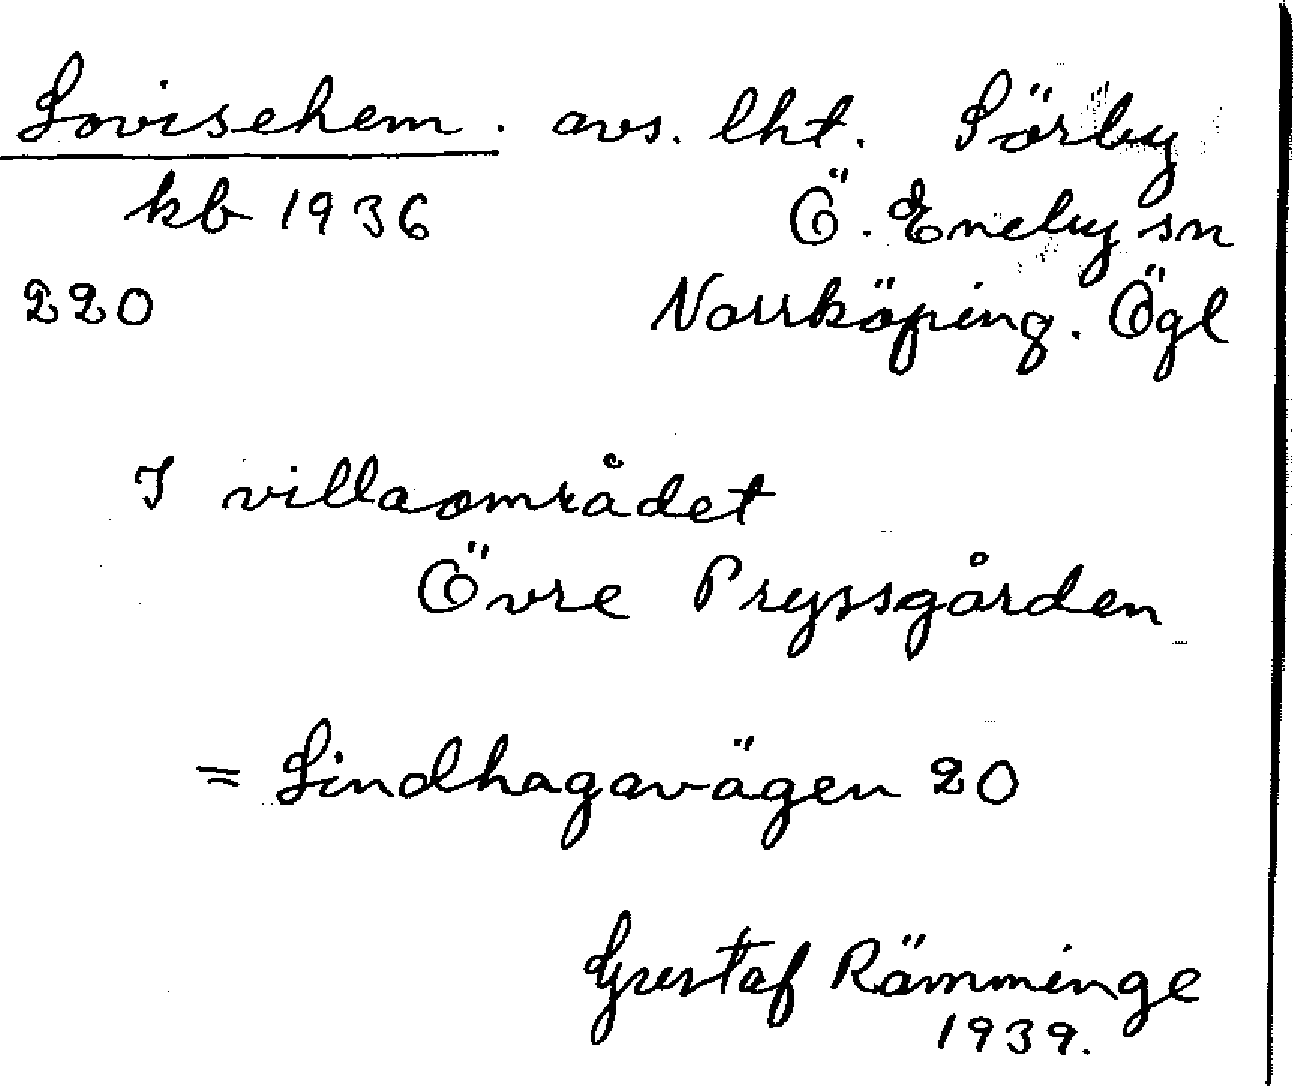 Lovisehem. avs. lht. Sörby
kb 1936 Ö. Eneby sn
220 Norrköping. Ögl
I villaområdet
Övre Pryssgården
= Lindhagavägen 20
Gustaf Rämminge
1939.